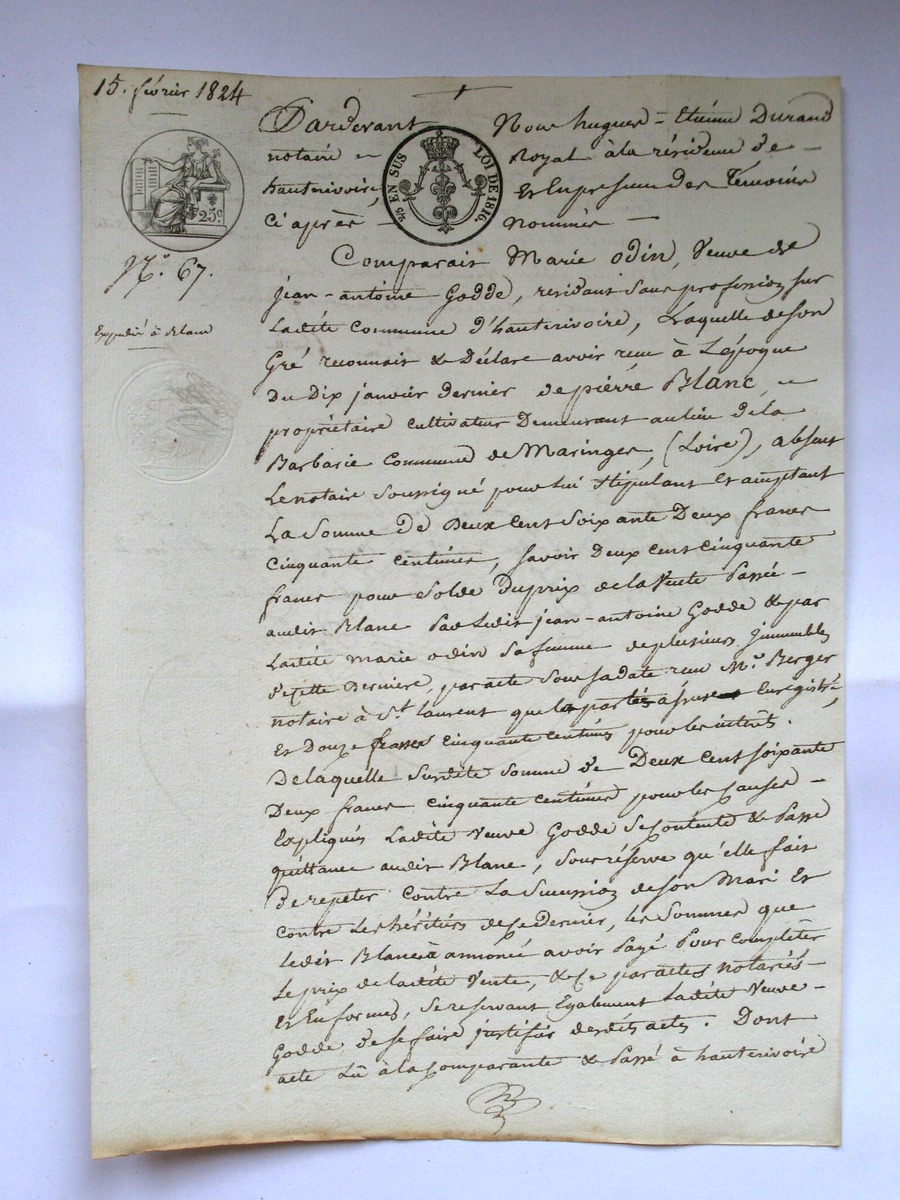 15. février 1824
25c
N.o 67.
Expédié à Blanc
EN SUS LOI DE 1816
Pardevant Nous hugues-Etienne Durand
notaire Royal à la résidence de
hauterivoire, Et En presence des Témoins
Ci après nommés
Comparait Marie odin, Veuve de
jean-antoine Godde, residant Sans profession Sur
Ladite Commune d'hauterivoire, Laquelle de Son
Gré reconnait & Déclare avoir reçu à L'epoque
du Dix janvier dernier de pierre Blanc
proprietaire cultivateur Demeurant au lieu de la
Barbarie Commune de Maringes, (Loire), absent
Le notaire Soussigné pour lui Stipulant Et acceptant
La Somme de Deux Cent Soixante Deux francs
Cinquante centimes, Savoir Deux cent cinquante
francs pour Solde Du prix de la Vente Passée
audit Blanc Par Ledit jean-antoine Godde & par
Ladite marie odin Sa femme de plusieurs immeubles
de cette Derniere, par acte Sous Sa date reçu Me Berger
notaire à St laurent que la partie assure Enregistré,
Et Douze francs Cinquante Centimes pour les intérêts.
De laquelle Susdite Somme de Deux Cent Soixante
Deux francs Cinquante Centimes pour les Causes
Expliquées Ladite Veuve Godde Se Contente & Passe
quittance audit Blanc, Sous réserve qu'elle fait
de repeter Contre La Succession de Son Mari Et
Contre Les héritiers de ce Dernier, les Sommes que
Ledit Blanc à annoncé avoir Payé Pour Completer
Le prix de ladite Vente, & Ce par actes notariés
Et En formes, Se reservant Egalement Ladite Veuve
Godde de Se faire justifier desdits actes. Dont
acte Lû à la Comparante & Passé à hauterivoire